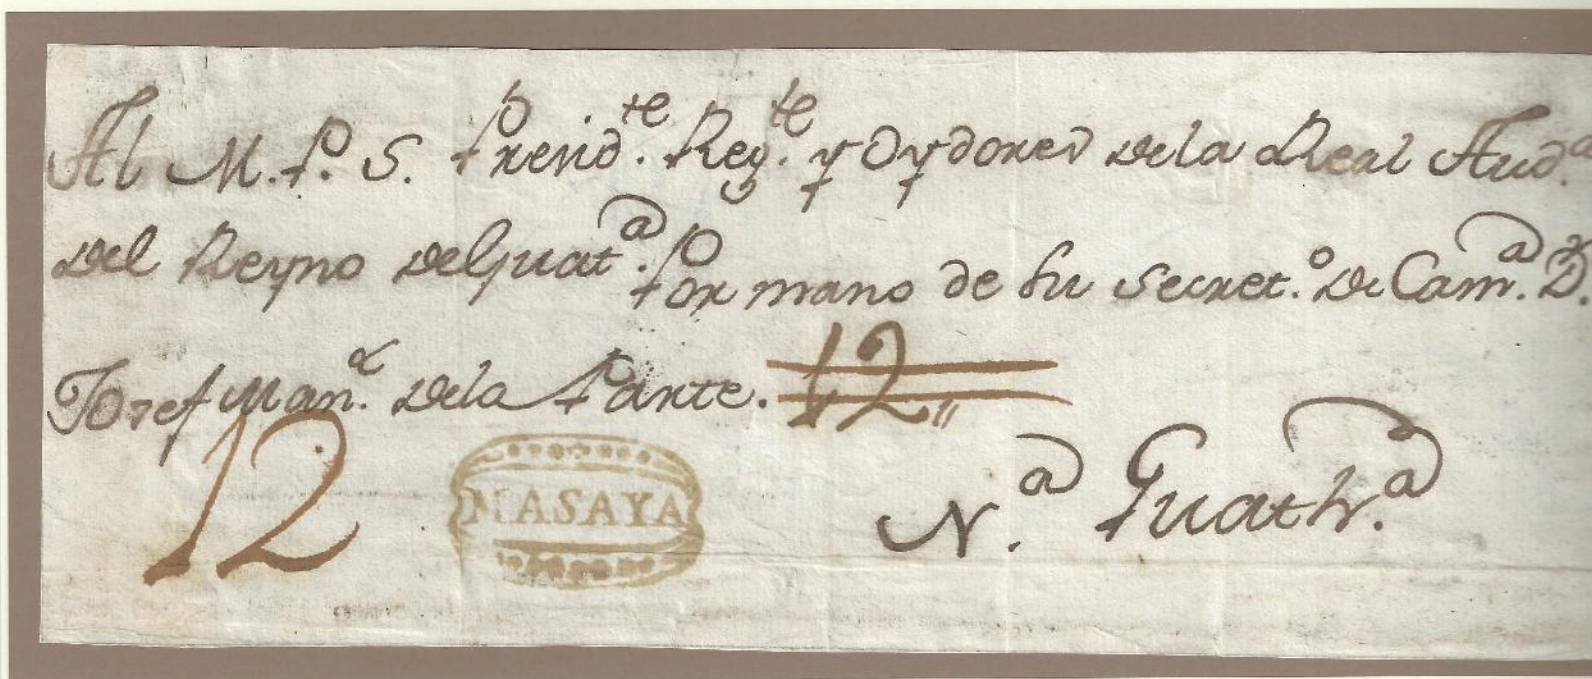 Al M. P. S. Presid.te Reg.te y Oydores dela Real Aud.a
del Reyno de Guat.a Por mano de su Secret.o de Cam.a D.n
Josef Man.l dela Parte. 12
12
MASAYA
N.a Guath.a